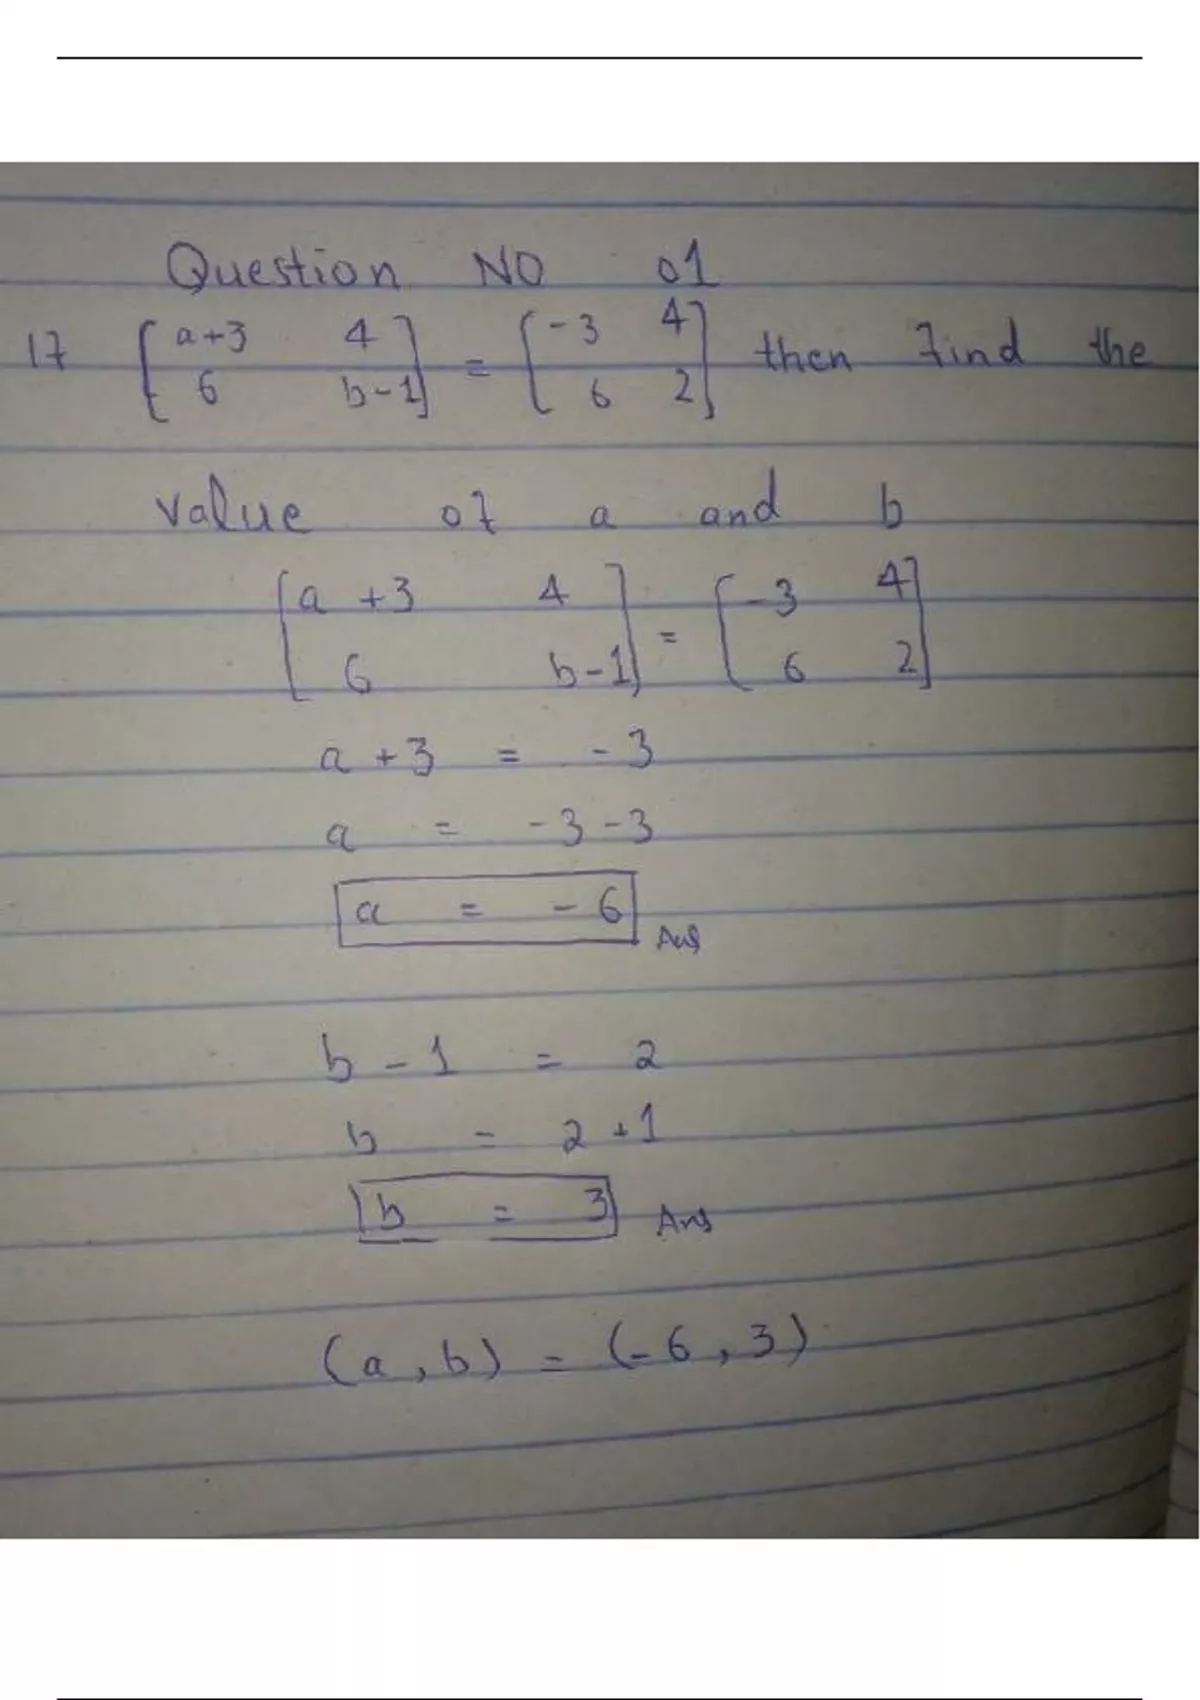 Question NO 01
If [a+3 4] = [-3 4] then find the
[6 b-1] [6 2]
value of a and b
[a +3 4] = [-3 4]
[6 b-1] [6 2]
a + 3 = - 3
a = - 3 - 3
a = - 6 Ans
b - 1 = 2
b = 2 + 1
b = 3 Ans
(a, b) = (-6, 3)